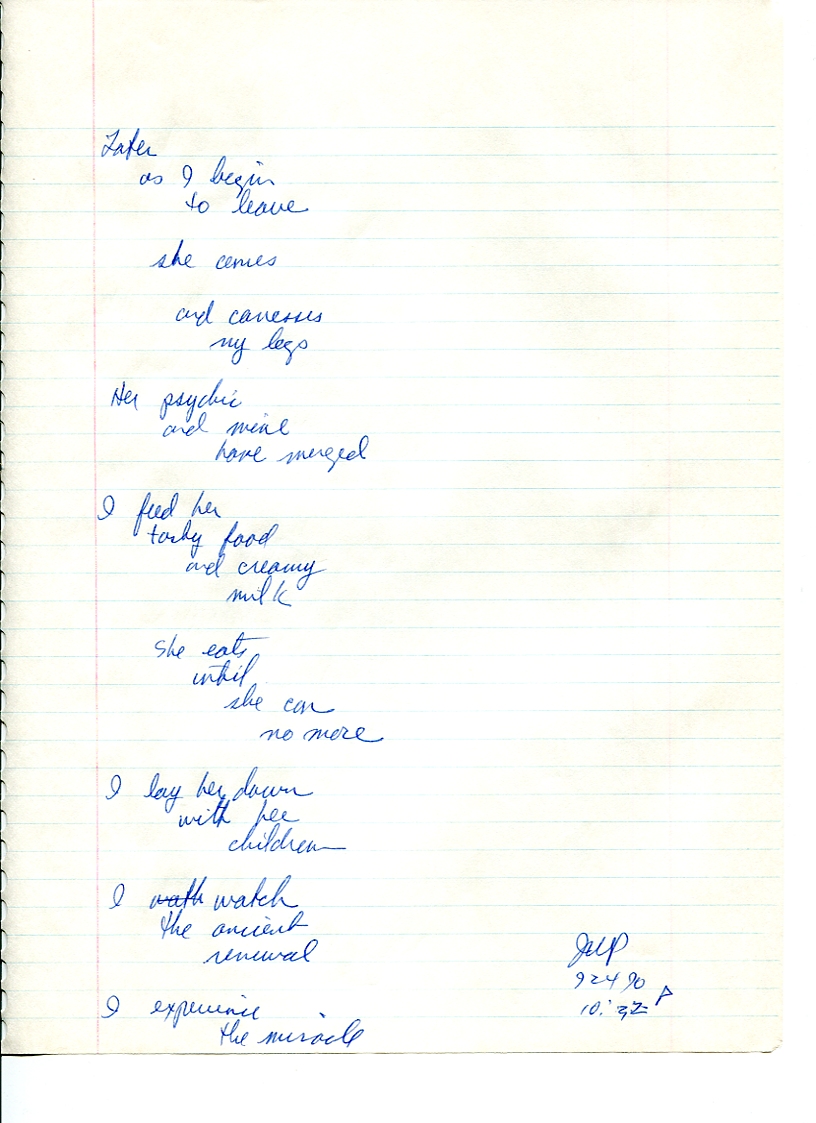 Later
as I begin
to leave
she comes
and caresses
my legs
Her psychic
and mine
have merged
I feed her
tasty food
and creamy
milk
She eats
until
she can
no more
I lay her down
with her
children
I watch
the ancient
renewal
I experience
the miracle
92490
10:32 P